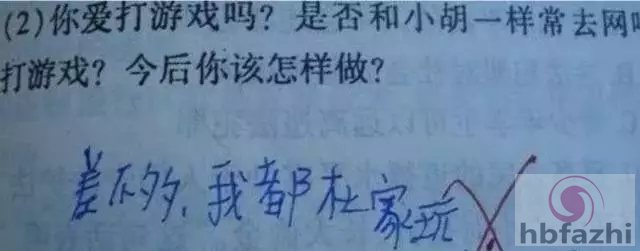 (2)你爱打游戏吗？是否和小胡一样常去网吧
打游戏？今后你该怎样做？
差不多，我都在家玩
hbfazhi